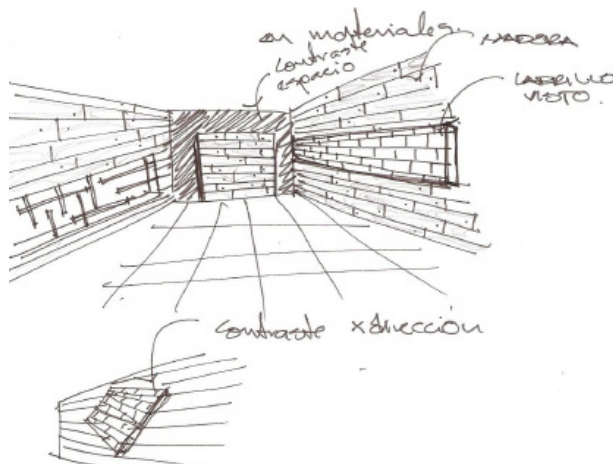 en materiales.
contraste
espacio
MADERA
LADRILLO
VISTO.
contraste x dirección